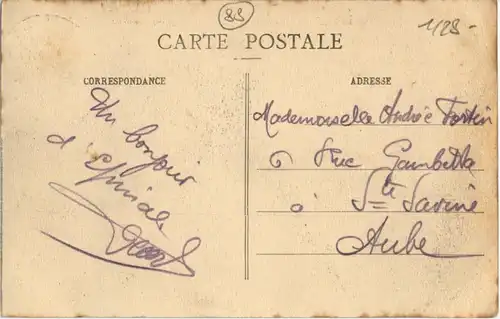 83
1/25-
CARTE POSTALE
CORRESPONDANCE
ADRESSE
Un bonjour
d'Epinal
Mademoiselle Andrée Fortin
6 Rue Gambetta
à Ste Savine
Aube